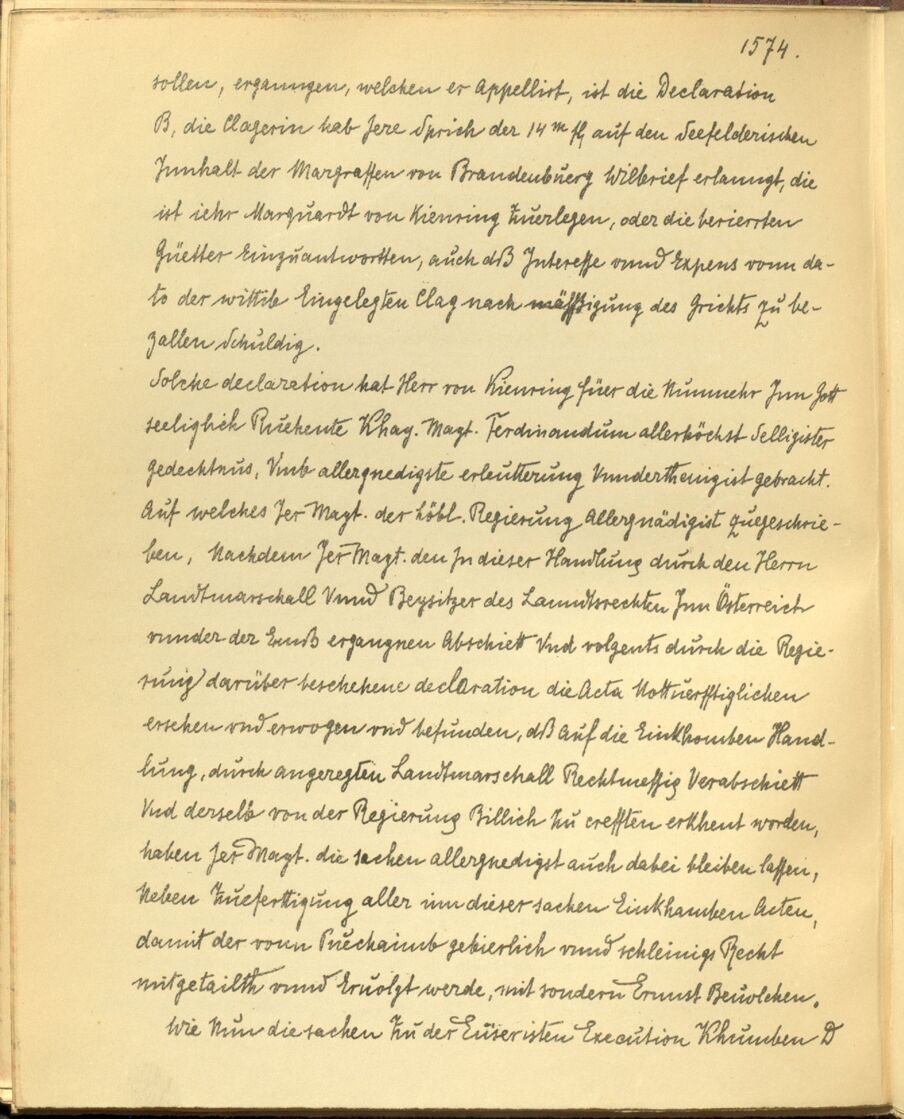 1574.
sollen, ergangen, welchen er Appellirt, ist die Declaration
B, die Clagerin hab Jere Sprich der 14 m fl auf den Seefelderischen
Innhalt der Margraffen von Brandenbuerg Wilbrief erlanngt, die
ist iehr Marquardt von Kienring Zuerlegen, oder die berierrten
Güetter Einzuantwortten, auch dß Interesse vnnd Expens vonn da-
to der wittib Eingelegten Clag nach mässigung des Grichts zu be-
zallen Schuldig.
Solche declaration hat Herr von Kienring füer die Nunmehr Inn Gott
seeliglich Ruehente Khay. Mayt. Ferdinandum allerhöchst Selligister
gedechtnus, Vmb allergnedigste erleutterung Vnnderthenigist gebracht.
Auf welches Jer Mayt. der Löbl. Regierung Allergnädigist zuegeschrie-
ben, Nachdem Jer Mayt. den In dieser Handlung durch den Herrn
Landtmarschall Vnnd Beysitzer des Lanndtsrechten Inn Österreich
vnnder der Ennß ergangnen Abschiett Vnd volgents durch die Regie-
rung darüber beschehene declaration die Acta Notturfftiglichen
ersehen vnd erwogen vnd befunden, dß Auf die Einkhomben Hand-
lung, durch angeregten Landtmarschall Rechtmessig Verabschiett
Vnd derselb von der Regierung Billich Zu crefften erkhent worden,
haben Jer Mayt. die sachen allergnedigst auch dabei bleiben lassen,
Neben Zuefertigung aller inn dieser sachen Einkhamben Acten,
damit der vonn Puechaimb gebierlich vnnd schleinigs Recht
mitgetailth vnnd Eruolgt werde, mit sondern Ernnst Beuolchen.
Wie Nun die sachen Zu der Eüseristen Execution Khumben D